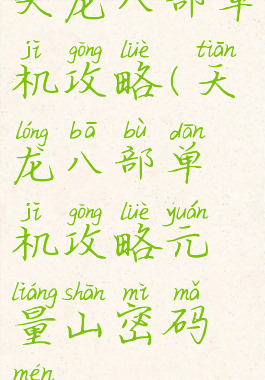 天龙八部单
jī gōng lüè tiān
机攻略(天
lóng bā bù dān
龙八部单
jī gōng lüè yuán
机攻略元
liáng shān mì mǎ
量山密码
mén